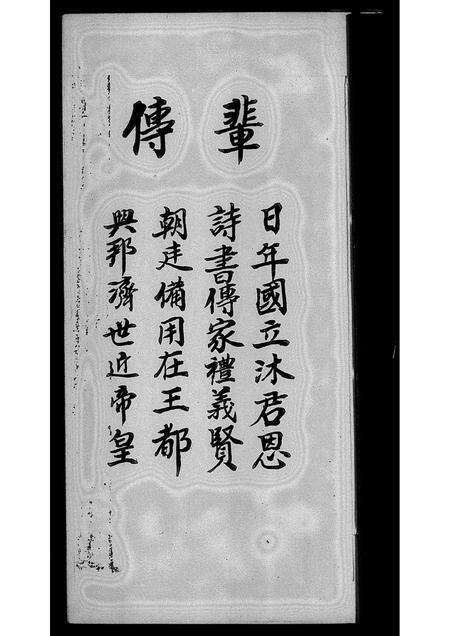 輩傳
日年國立沐君恩
詩書傳家禮義賢
朝走備用在王都
興邦濟世近帝皇